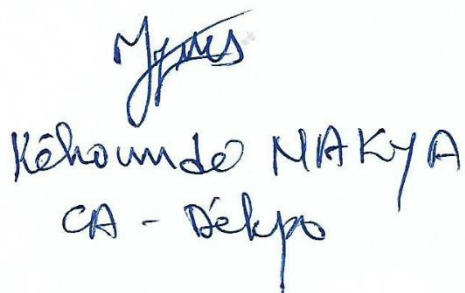 Kêhoundé MAKYA
CA - Dékpo